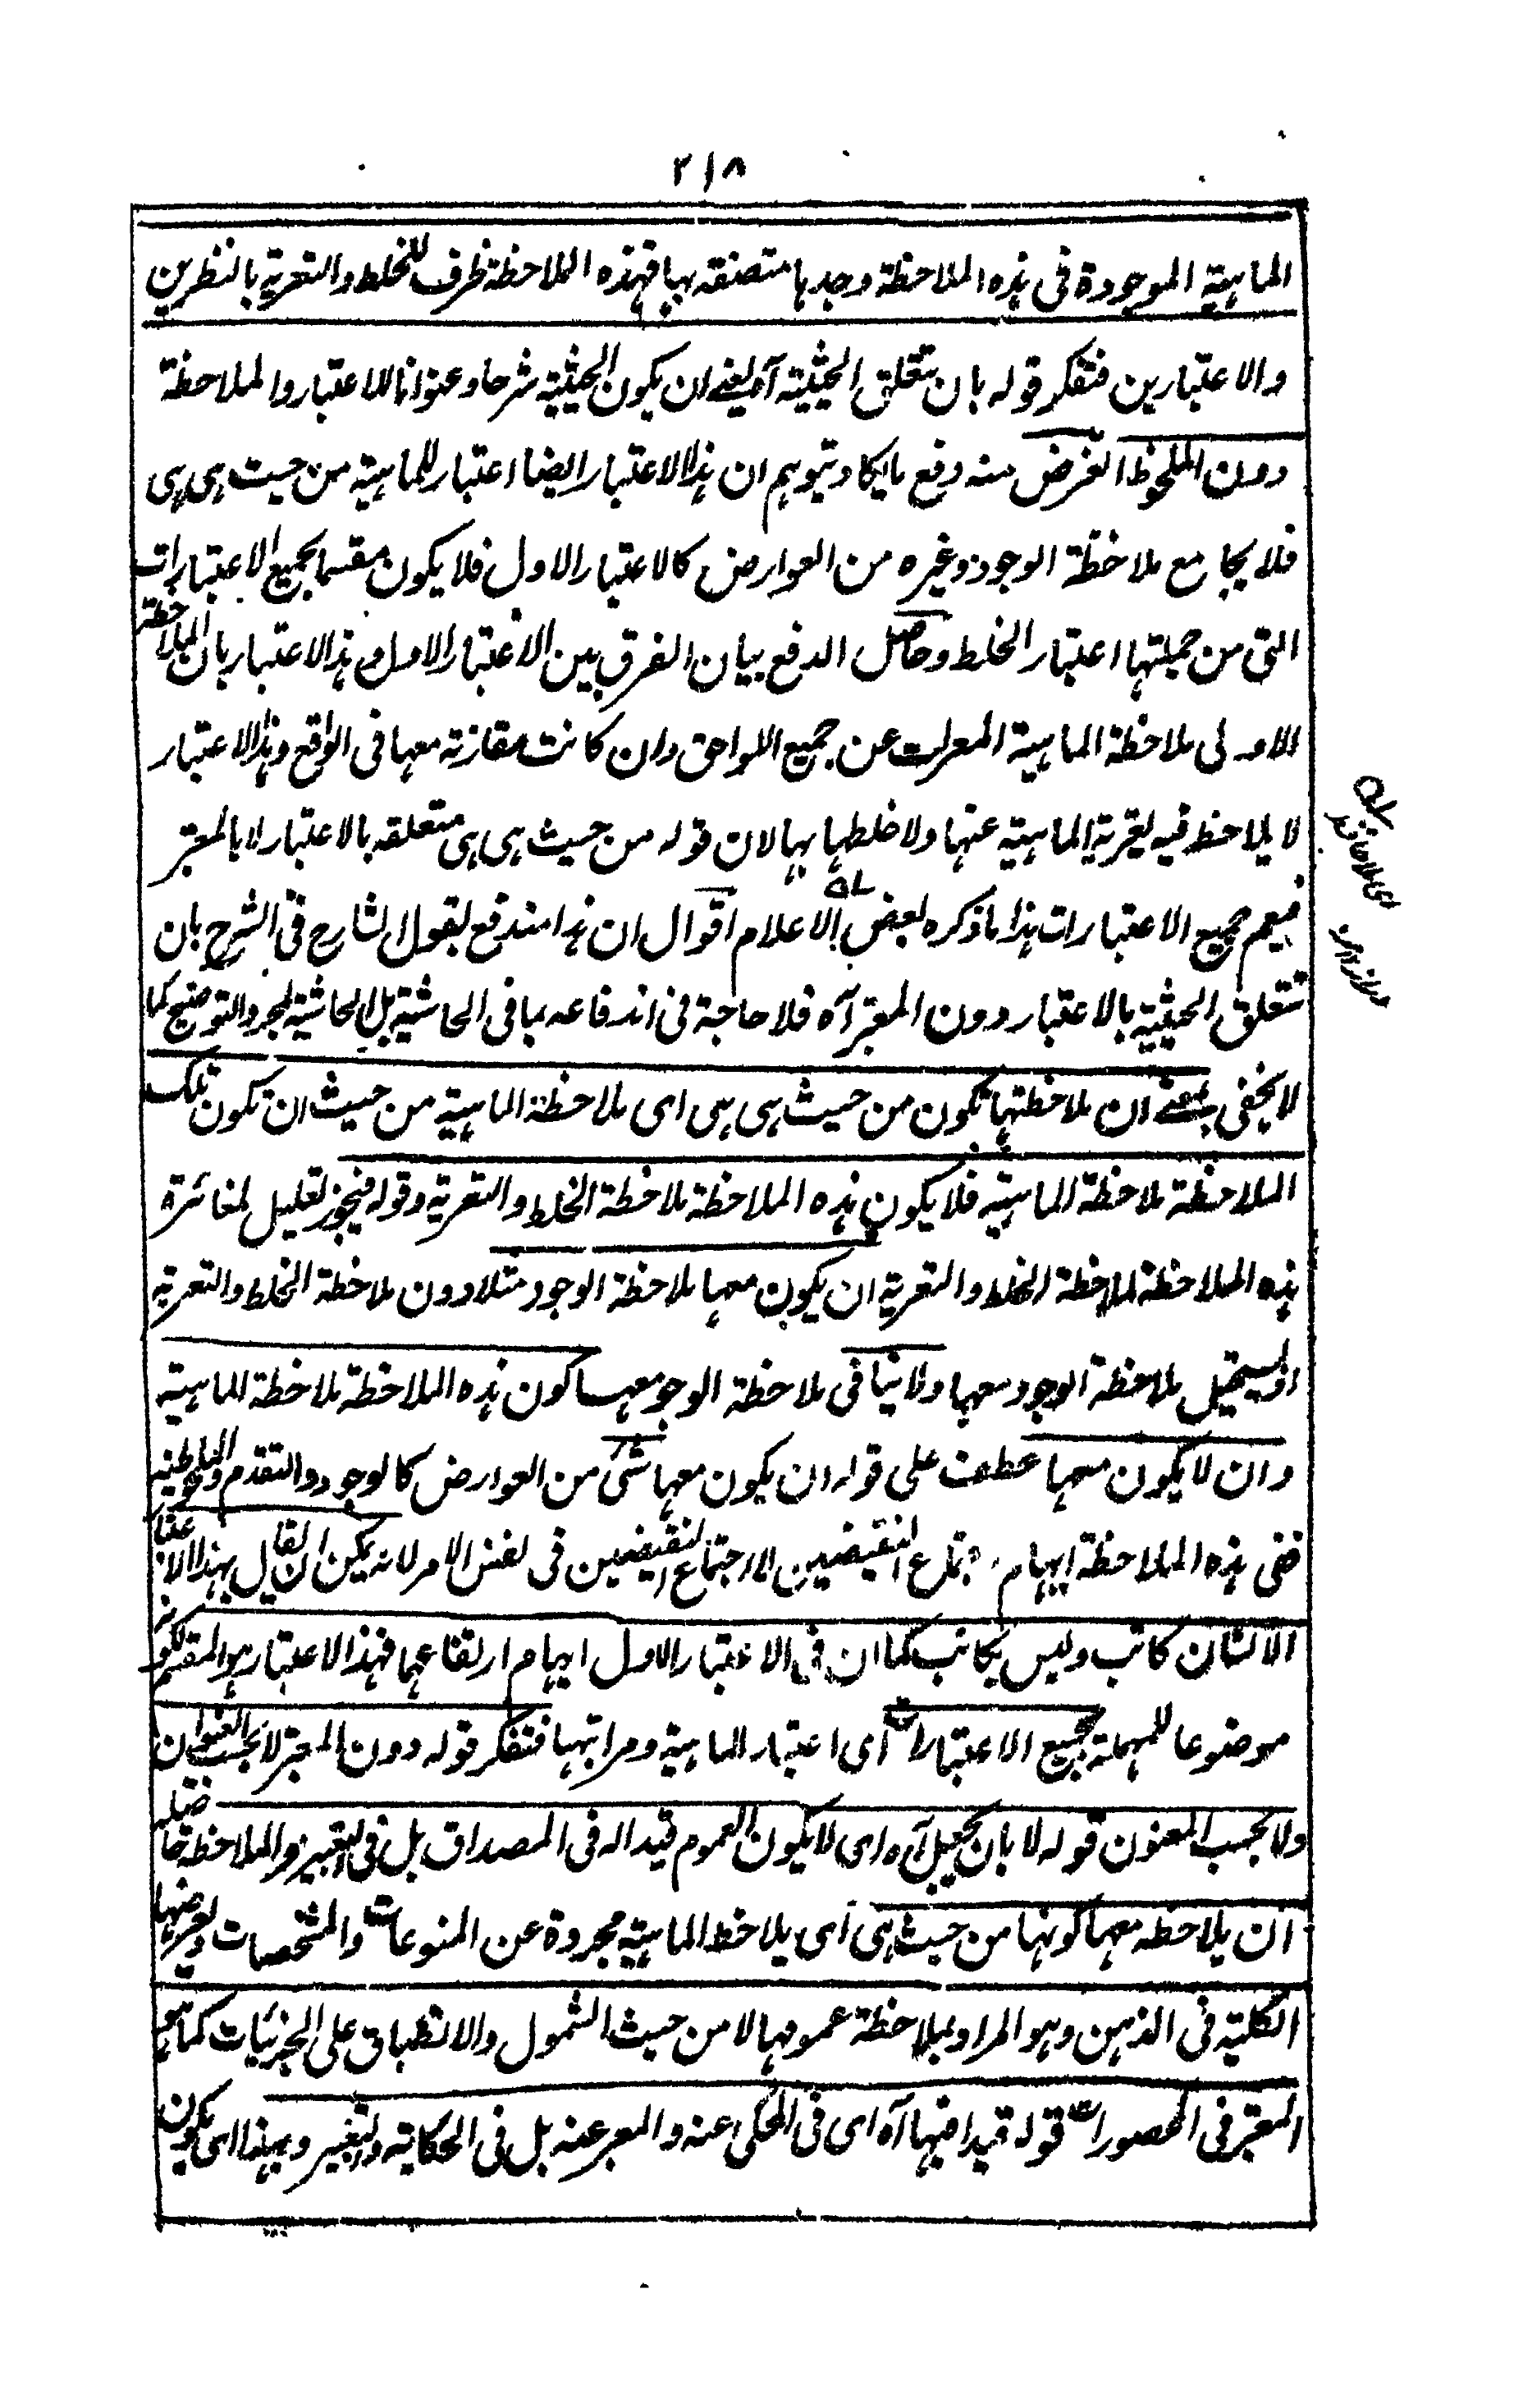 ٢١٨
الماهية الموجودة فى هذه الملاحظة وجدها متصفة بها فهذه الملاحظة ظرف للخلط والتعرية بالنظرين
والاعتبارين فتفكر قوله بان تتعلق الحيثية آه يعنے ان يكون الحيثية شرحا وعنوانا للاعتبار والملاحظة
دون الملحوظ الغرض منه دفع ما يكاد يتوهم ان هذا الاعتبار ايضا اعتبار للماهية من حيث هى هى
فلا يجامع ملاحظة الوجود وغيره من العوارض كالاعتبار الاول فلا يكون مقسما لجميع الاعتبارات
التى من جملتها اعتبار الخلط وحاصل الدفع بيان الفرق بين الاعتبار الاول وهذا الاعتبار بان الملاحظة
الاولى ملاحظة الماهية المعراة عن جميع اللواحق وان كانت مقارنة معها فى الواقع وهذا الاعتبار
لا يلاحظ فيه تعرية الماهية عنها ولا خلطها بها لان قوله من حيث هى هى متعلقة بالاعتبار لا بالمعتبر
فيعم جميع الاعتبارات هذا ما ذكره بعض الاعلام اقول ان هذا مندفع بقول الشارح فى الشرح بان
تتعلق الحيثية بالاعتبار دون المعتبر آه فلا حاجة فى اندفاعه بما فى الحاشية بل الحاشية لمجرد التوضيح كما
لا يخفى بمعنے ان ملاحظتها تكون من حيث هى هى اى ملاحظة الماهية من حيث ان تكون تلك
الملاحظة ملاحظة الماهية فلا يكون هذه الملاحظة ملاحظة الخلط والتعرية وقوله فيجوز تعليل لمغائرة
هذه الملاحظة لملاحظة الخلط والتعرية ان يكون معها ملاحظة الوجود مثلا دون ملاحظة الخلط والتعرية
اذ يستحيل ملاحظة الوجود معها ولا ينافى ملاحظة الوجود معها كون هذه الملاحظة ملاحظة الماهية
وان لا يكون معها عطف على قوله ان يكون معها شئ من العوارض كالوجود والتقدم
ففى هذه الملاحظة ايهام اجتماع النقيضين لا اجتماع النقيضين فى نفس الامر لانه يمكن ان يقال بهذا الاعتبار
الانسان كاتب وليس بكاتب كما ان فى الاعتبار الاول ايهام ارتفاعهما فهذا الاعتبار هو المقسم
موضوعا للمهملة لجميع الاعتبارات اى اعتبار الماهية ومراتبها فتفكر قوله دون المعتبر لا بحسب العنوان
ولا بحسب المعنون قوله لا بان يجعل آه اى لا يكون العموم قيدا له فى المصداق بل فى التعبير والملاحظة
ان يلاحظه معها كونها من حيث هى اى يلاحظ الماهية مجردة عن المنوعات والمشخصات ويعرضها
الكلية فى الذهن وهو المراد بملاحظة عمومها لا من حيث الشمول والانطباق على الجزئيات كما هو
المعتبر فى المحصورات قوله قيدا فيها آه اى فى المحكى عنه والمعبر عنه بل فى الحكاية والتعبير وبهذا اى يكون